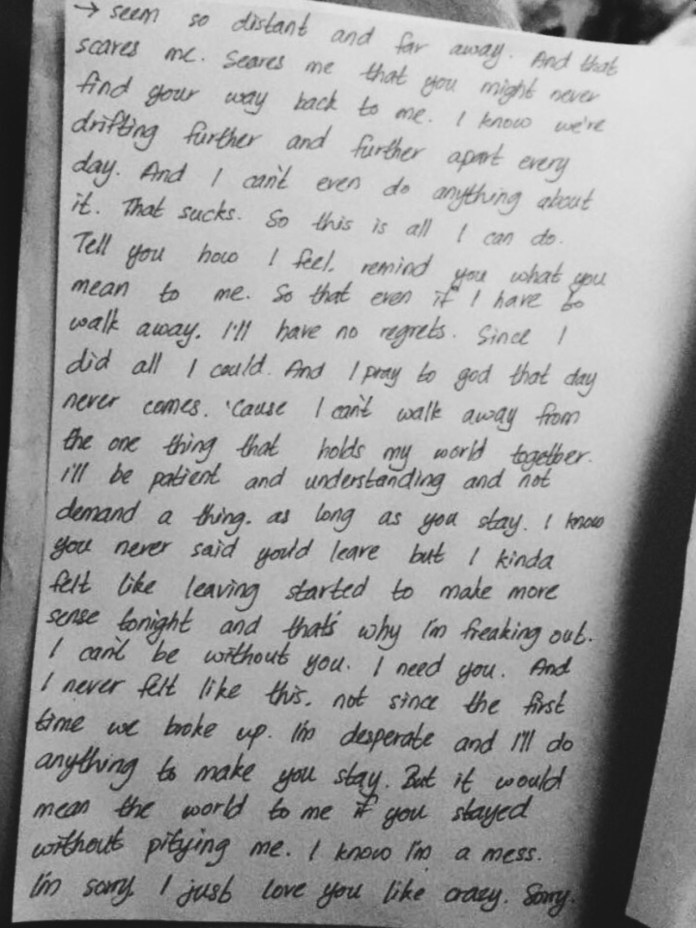 → seem so distant and far away. And that
scares me. Scares me that you might never
find your way back to me. I know we're
drifting further and further apart every
day. And I can't even do anything about
it. That sucks. So this is all I can do.
Tell you how I feel, remind you what you
mean to me. So that even if I have to
walk away. I'll have no regrets. Since I
did all I could. And I pray to god that day
never comes. 'Cause I can't walk away from
the one thing that holds my world together.
I'll be patient and understanding and not
demand a thing. as long as you stay. I know
you never said you'd leave but I kinda
felt like leaving started to make more
sense tonight and that's why I'm freaking out.
I can't be without you. I need you. And
I never felt like this. not since the first
time we broke up. I'm desperate and I'll do
anything to make you stay. But it would
mean the world to me if you stayed
without pitying me. I know I'm a mess.
I'm sorry I just love you like crazy. Sorry.